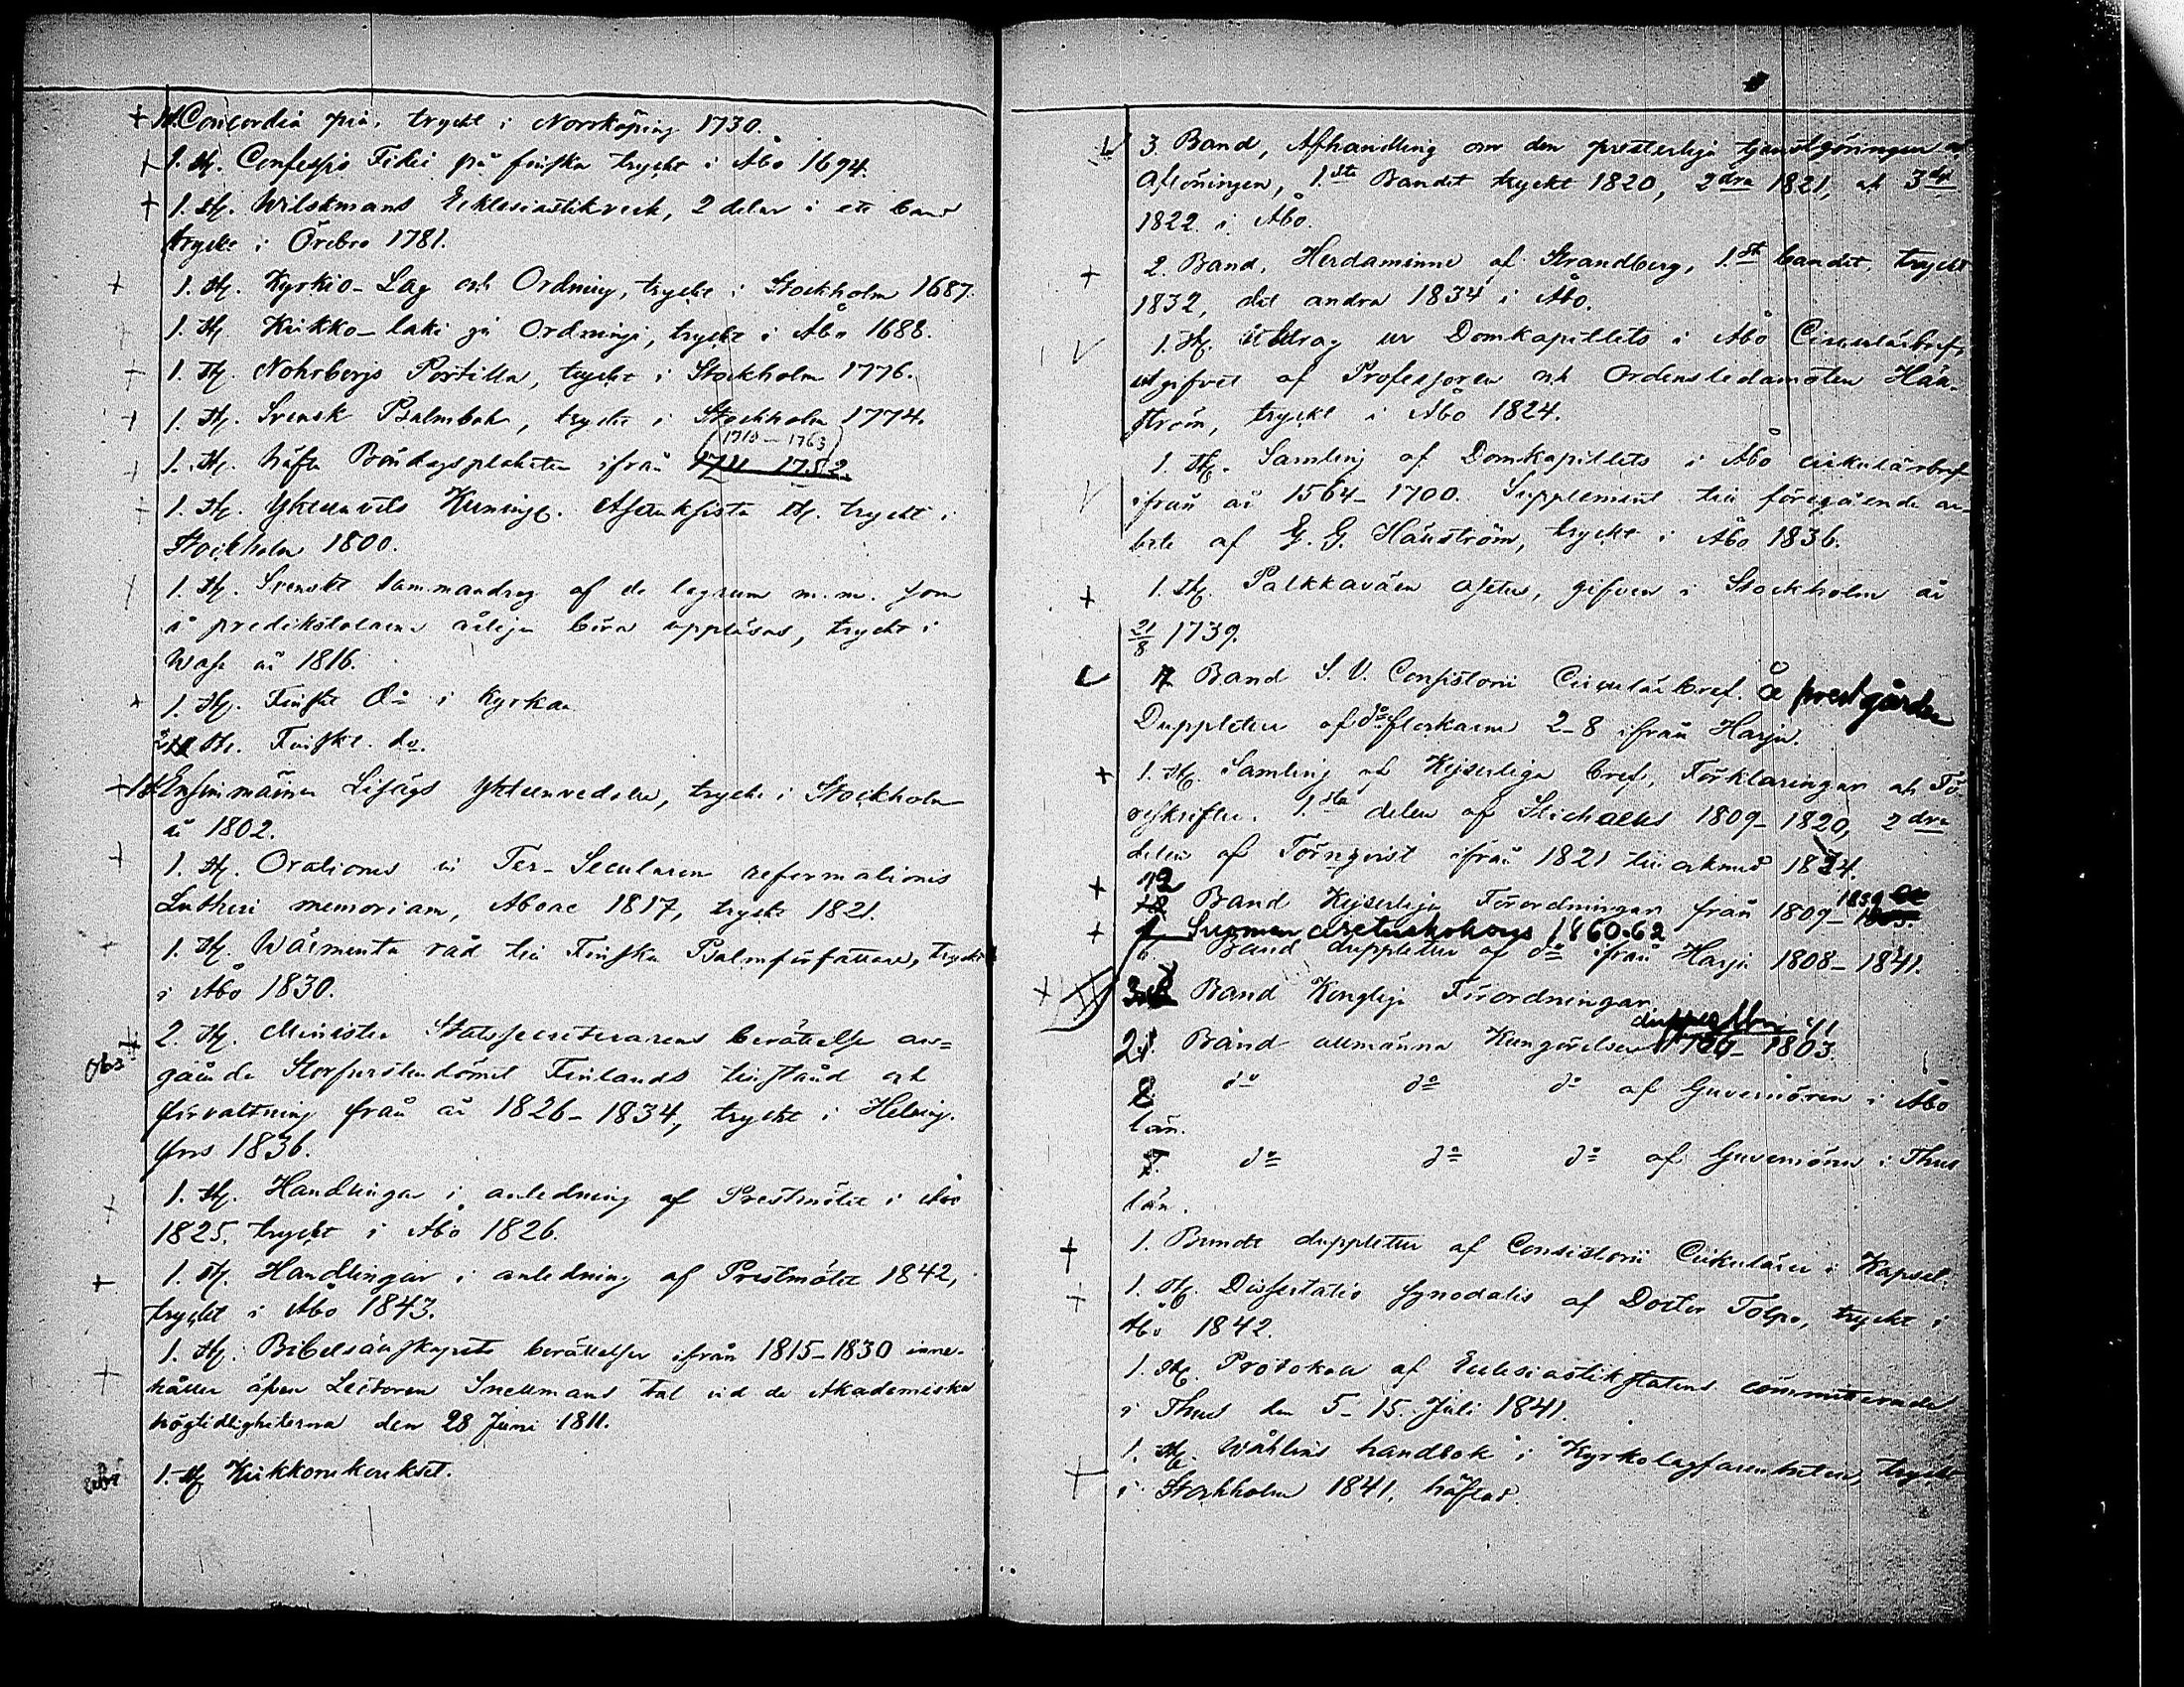 + 1 st. Concordia pia, tryckt i Norrköping 1730.
+ 1. st. Confessio Fidei på finska tryckt i Åbo 1694.
+ 1. st. Wilskmans Ecklesiastikverk, 2 delar i ett band
tryckt i Örebro 1781.
+ 1. st. Kyrkio-Lag och Ordning, tryckt i Stockholm 1687.
1. st. Kirkko-laki ja Ordningi, tryckt i Åbo 1688.
+ 1. st. Nohrborgs Postilla, tryckt i Stockholm 1776.
+ 1. st. Svensk Psalmbok, tryckt i Stockholm 1774.
(1710-1763)
+ 1. st. häfte Böndagsplakater ifrån 1711 1752.
+ 1. st. Yhteenveto Kuning. Asetuksista tryckt i
Stockholm 1800.
1. st. Svenskt sammandrag af de lagrum m.m. som
å predikstolarne årligen böra uppläsas, tryckt i
Wasa år 1816.
+ 1. st. Finskt do i Kyrkan
st. Finskt. do.
+ 1 st Ensimmäinen Lisäys Yhteenvedoln, tryckt i Stockholm
år 1802.
+ 1. st. Orationes in Ter-Secularem reformationis
Lutheri memoriam, Aboae 1817, tryckt 1821.
+ 1. st. Wälmenta råd till Finska Psalmförfattare, tryckt
i Åbo 1830.
Obs + 2. st. Minister Statssecreterarens berättelse an-
gående Storfurstendömet Finlands tillstånd och
förvaltning från år 1826-1834, tryckt i Helsing-
fors 1836.
+ 1. st. Handlingar i anledning af Prestmötet i Åbo
1825, tryckt i Åbo 1826.
+ 1. st. Handlingar i anledning af Prestmötet 1842,
tryckt i Åbo 1843.
+ 1. st. Bibelsällskapets berättelser ifrån 1815-1830 inne-
håller äfven Lectoren Snellmans tal vid de Akademiska
högtidligheterna den 28 Juni 1811.
1. st Kirkkorukoukset.
3. Band, Afhandling om den presterliga tjenstgöringen och
Aflöningen, 1.sta Bandet tryckt 1820, 2dra 1821, och 3dje
1822 i Åbo.
+ 2. Band, Herdaminne af Strandberg, 1.sta bandet, tryckt
1832, det andra 1834 i Åbo.
1. st. Utdrag ur Domkapitlets i Åbo Circulärbref,
utgifvet af Professoren och Ordensledamoten Hän-
ström, tryckt i Åbo 1824.
1. st. Samling af Domkapitlets i Åbo cirkulärbref
ifrån år 1564-1700. Supplement till föregående ar-
bete af G. G. Hänström, tryckt i Åbo 1836.
+ 1. st. Palkkaväen asetus, gifven i Stockholm år
21/8 1739.
7. Band S. V. Consistorii Circulär bref. å prestgården
Duppletter af do flerkarne 2-8 ifrån Harju.
+ 1. st. Samling af Kejserliga bref, Förklaringar och Fö-
reskrifter. 1.sta delen af Stichaeus 1809-1820, 2dra
delen af Törnqvist ifrån 1821 till och med 1824.
+ 12 Band Kejserliga Förordningar från 1809- 1839
+ 1 Suomen Asetuskokous 1860-62
Band duppletter af do ifrån Harju 1808-1841.
+ 3 Band Kongliga Förordningar
21. Band allmänna Kungörelser 1720-1803
8 do do do af Guvernören i Åbo
län.
7. do do do af Guvernören i Thus
län.
+ 1. Bundt duppletter af Consistorii Cirkulärer i Kapsel.
+ 1. st. Dissertatio Synodalis af Doctor Tolpo, tryckt i
Åbo 1842.
1. st. Protokoll af Ecclesiastikstatens committerade
i Thus den 5-15 Juli 1841.
+ 1. st. Wåhlins handbok i Kyrkolagfarenheten, tryckt
i Stockholm 1841, häftad.